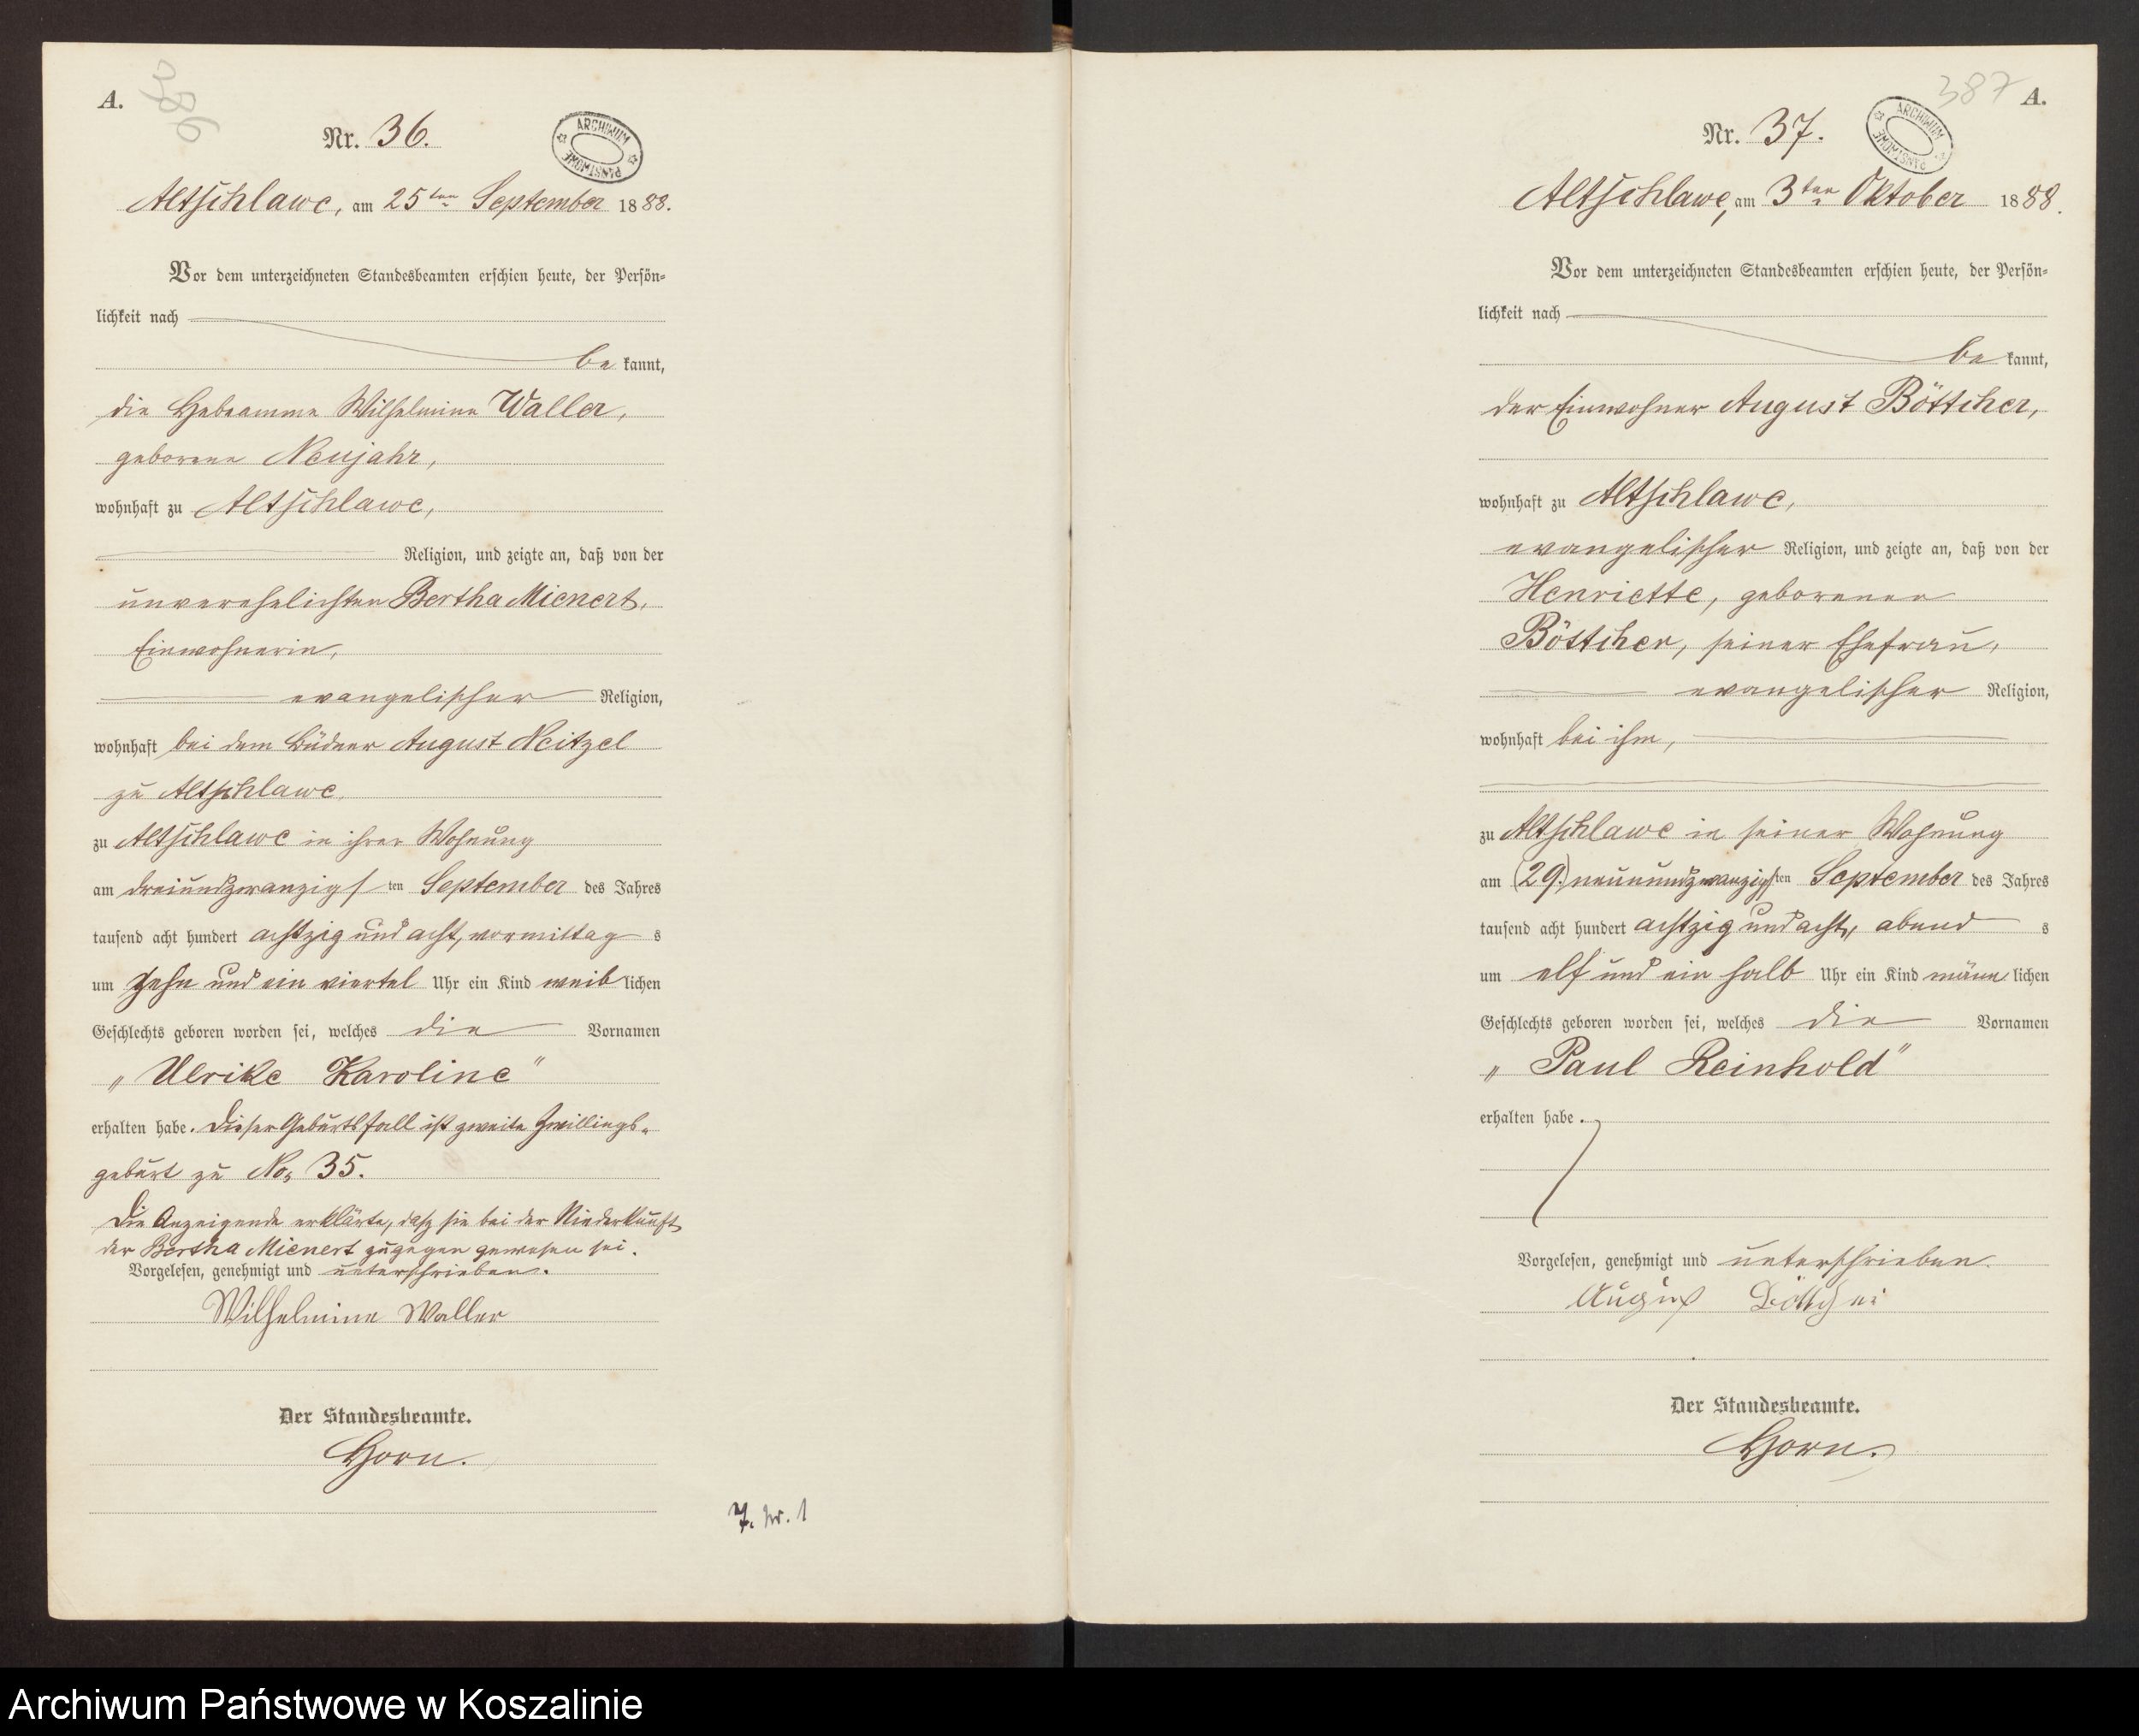 A.
386
Nr. 36.
ARCHIWUM PAŃSTWOWE
Altschlawe, am 25ten September 1888.
Vor dem unterzeichneten Standesbeamten erschien heute, der Persön-
lichkeit nach
be kannt,
die Hebeamme Wilhelmine Waller,
geborene Neujahr,
wohnhaft zu Altschlawe,
Religion, und zeigte an, daß von der
unverehelichten Bertha Mienert,
Einwohnerin,
evangelischer Religion,
wohnhaft bei dem Büdner August Neitzel
zu Altschlawe,
zu Altschlawe in ihrer Wohnung
am dreiundzwanzigsten September des Jahres
tausend acht hundert achtzig und acht, vormittag s
um zehn und ein viertel Uhr ein Kind weib lichen
Geschlechts geboren worden sei, welches die Vornamen
„Ulrike Karoline“
erhalten habe. Dieser Geburtsfall ist zweite Zwillings-
geburt zu No. 35.
Die Anzeigende erklärte, daß sie bei der Niederkunft
der Bertha Mienert zugegen gewesen sei.
Vorgelesen, genehmigt und unterschrieben.
Wilhelmine Waller
Der Standesbeamte.
Horn.
7. Nr. 1
387 A.
Nr. 37.
ARCHIWUM PAŃSTWOWE
Altschlawe, am 3ten Oktober 1888.
Vor dem unterzeichneten Standesbeamten erschien heute, der Persön-
lichkeit nach
be kannt,
der Einwohner August Böttcher,
wohnhaft zu Altschlawe,
evangelischer Religion, und zeigte an, daß von der
Henriette, geborenen
Böttcher, seiner Ehefrau,
evangelischer Religion,
wohnhaft bei ihm,
zu Altschlawe in seiner Wohnung
am (29.) neunundzwanzigsten September des Jahres
tausend acht hundert achtzig und acht, abend s
um elf und ein halb Uhr ein Kind männ lichen
Geschlechts geboren worden sei, welches die Vornamen
„Paul Reinhold“
erhalten habe.
Vorgelesen, genehmigt und unterschrieben.
August Böttcher
Der Standesbeamte.
Horn.
Archiwum Państwowe w Koszalinie